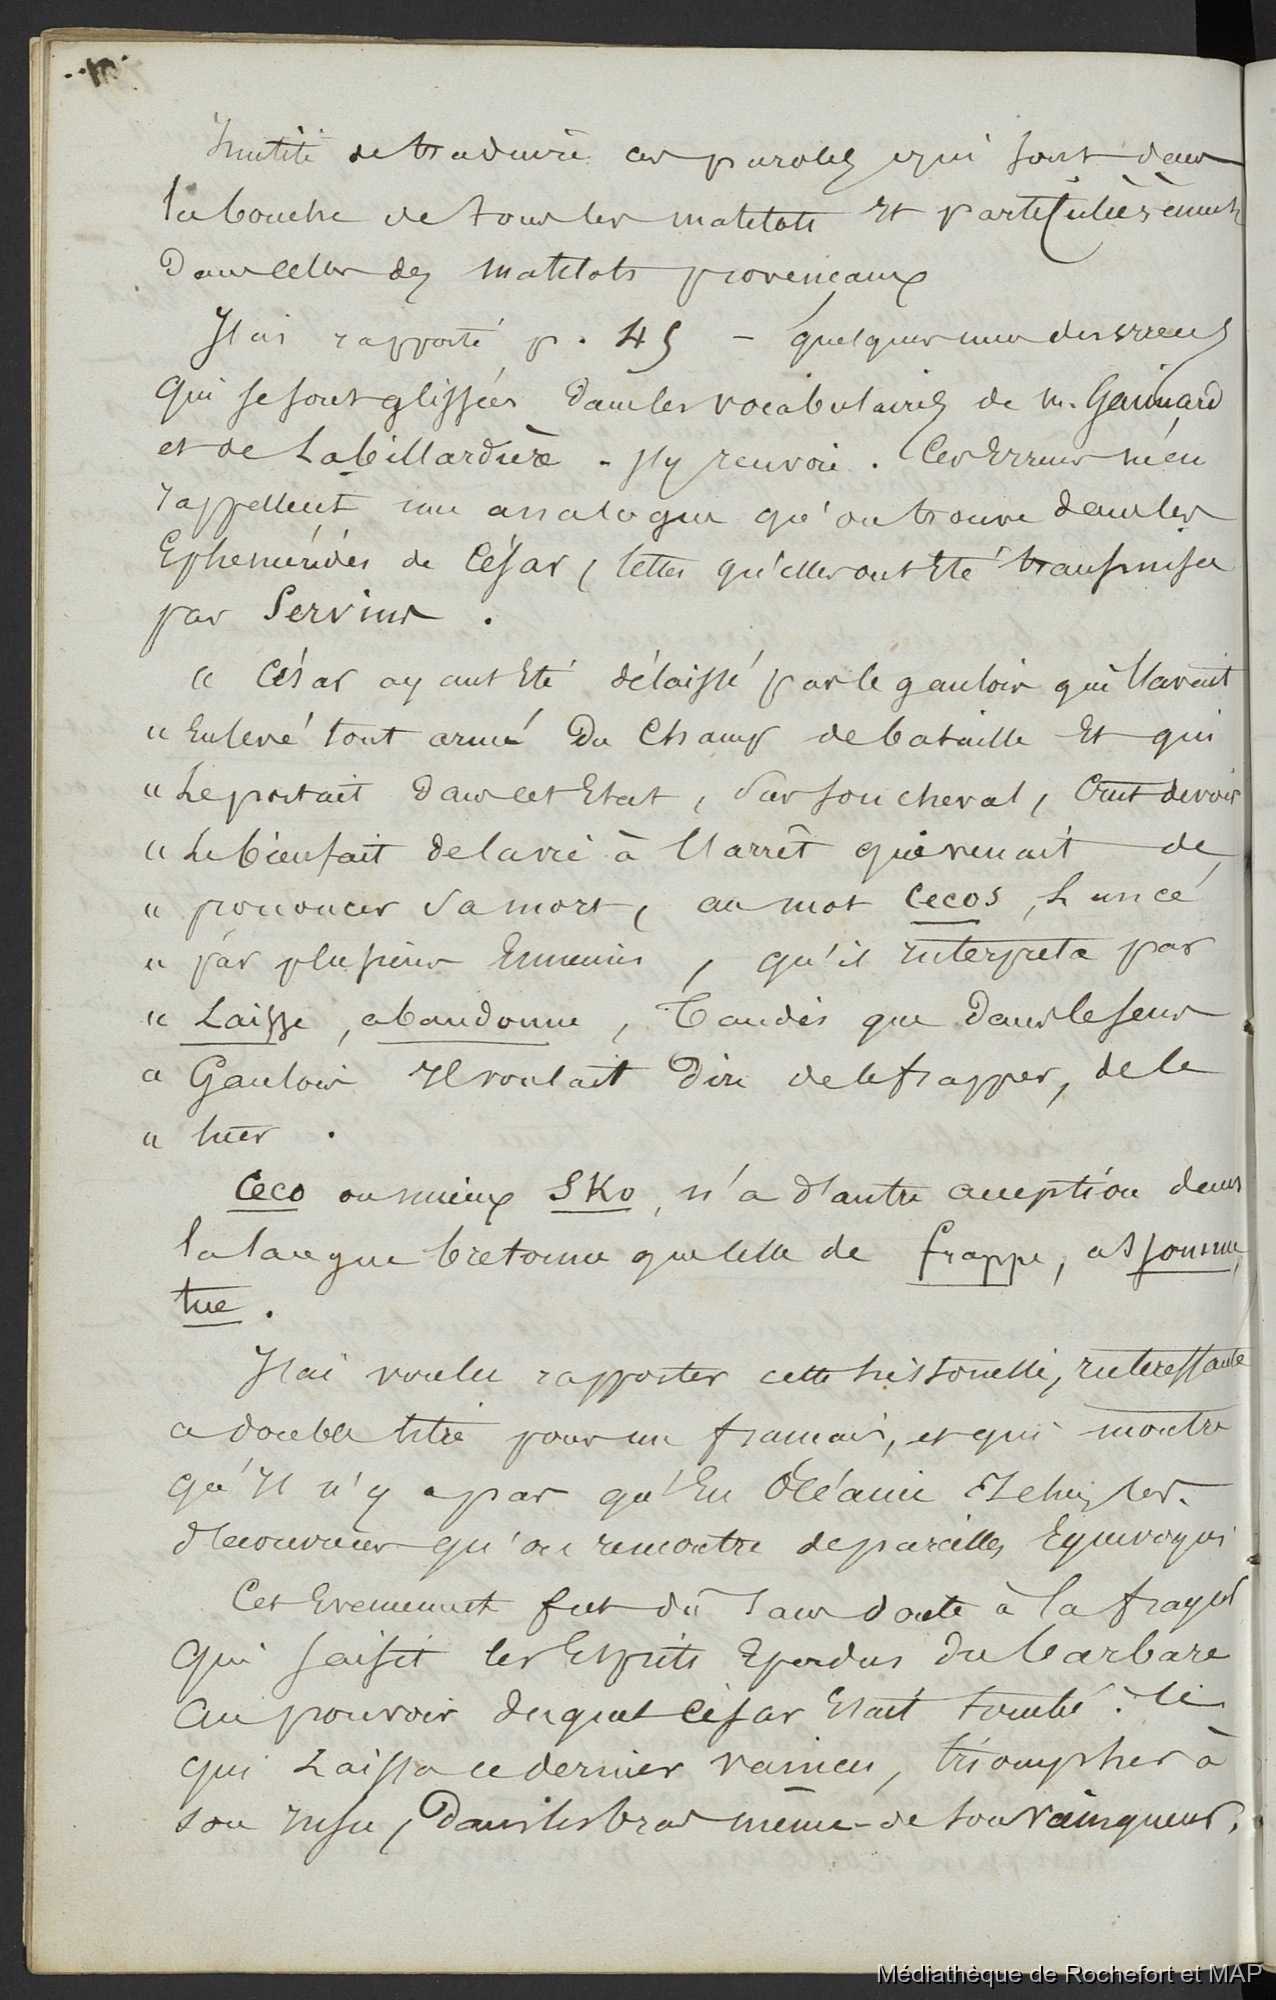 Inutile de traduire ces paroles qui sont dans
la bouche de tous les matelots et particulièrement
dans celles des matelots provençaux
J'ai rapporté p. 45 – quelques unes des erreurs
qui se sont glissées dans les vocabulaires de m. Gaimard
et de Labillardière - J'y renvoie. Ces Erreurs m'en
rappellent une analogue qu'on trouve dans les
Ephémérides de César, telles qu'elles ont été transmises
par Servius.
" César ayant été délaissé par le gaulois qui l'avait
" Enlevé tout armé du champ de bataille Et qui
" Le portait dans cet Etat, sur son cheval, Crut devoir
" Le bienfait de la vie à l'arrêt qui venait de
" prononcer sa mort, au mot Cecos, Lancé
" par plusieurs Ennemis, qu'il interpreta par
" Laisse, abandonne, Tandis que dans le sens
" Gaulois Il voulait dire de le frapper, de le
" tuer.
Ceco ou mieux SKo, n'a d'autre acception dans
la langue bretonne que celle de frappe, assomme,
tue.
J'ai voulu rapporter cette historiette, interessante
a double titre pour un français, et qui montre
qu'il n'y a pas qu'En Océanie Et chez les
découvreurs qu'on rencontre de pareilles Equivoques
Cet Evenement fut dû sans doute à la frayeur
qui saisit les Esprits Eperdus du barbare
au pouvoir duquel César Etait tombé. le
qui Laissa ce dernier vaincu, triompher à
son insu, Dans les bras même de son vainqueur.
Médiathèque de Rochefort et MAP